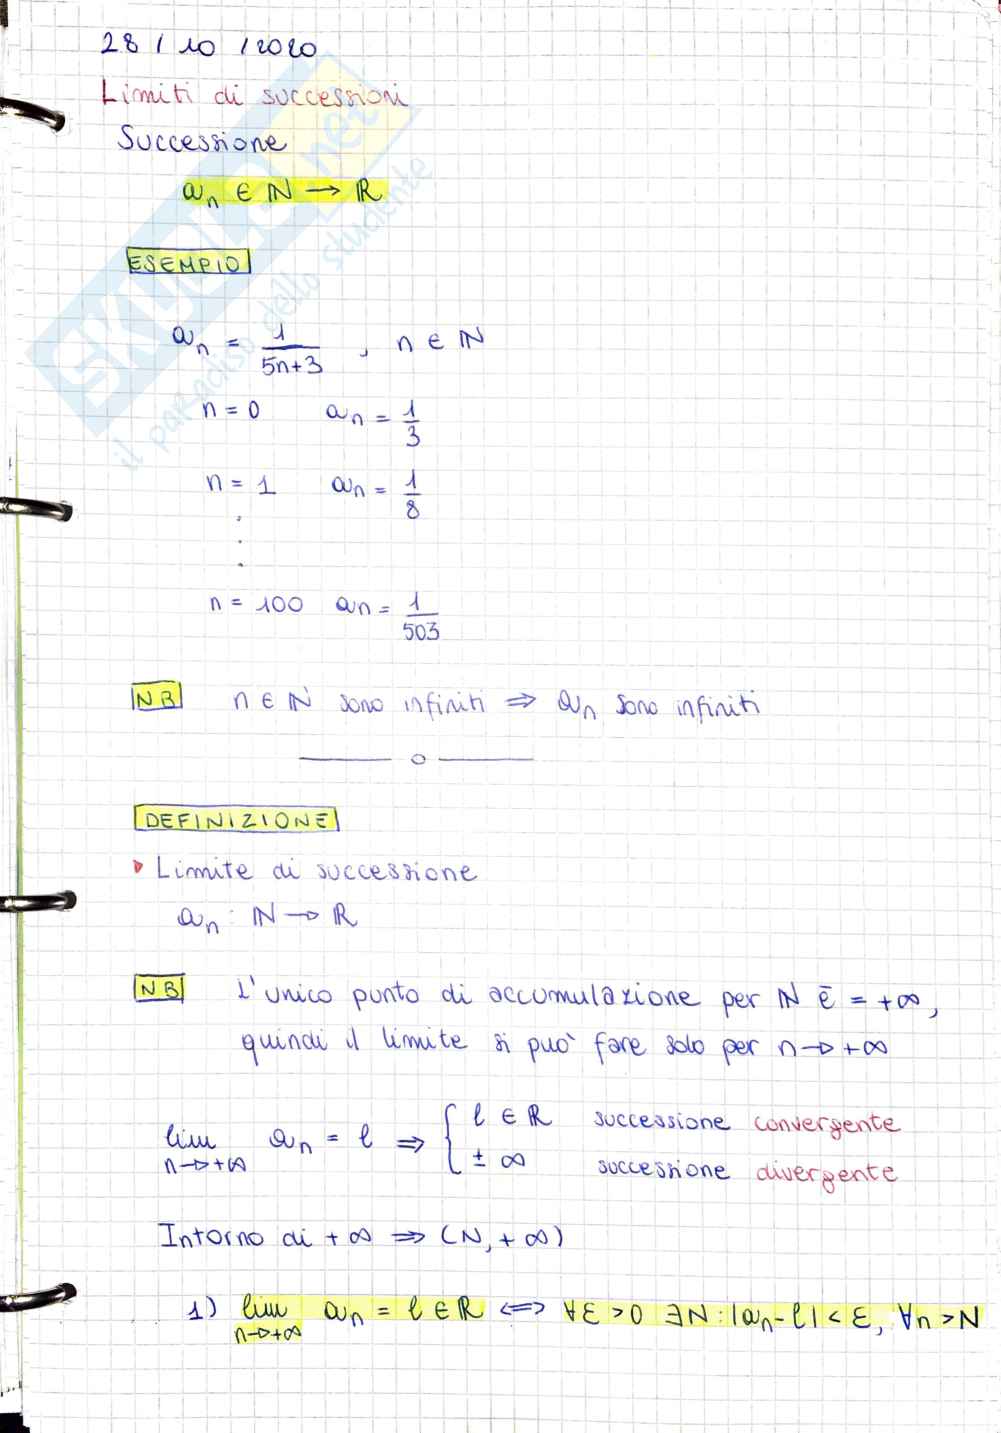 28/10/2020
Limiti di successioni
Successione
aₙ ∈ ℕ → ℝ
ESEMPIO
aₙ = 1/(5n+3) , n ∈ ℕ
n = 0 aₙ = 1/3
n = 1 aₙ = 1/8
⋮
n = 100 aₙ = 1/503
NB n ∈ ℕ sono infiniti ⇒ aₙ sono infiniti
DEFINIZIONE
Limite di successione
aₙ : ℕ → ℝ
NB L'unico punto di accumulazione per ℕ è = +∞,
quindi il limite si può fare solo per n → +∞
lim n→+∞ aₙ = l ⇒ { l ∈ ℝ successione convergente
± ∞ successione divergente
Intorno di +∞ ⇒ (N, +∞)
1) lim n→+∞ aₙ = l ∈ ℝ ⟺ ∀ε > 0 ∃N : |aₙ - l| < ε, ∀n > N
SKUOLA.net
il paradiso dello studente